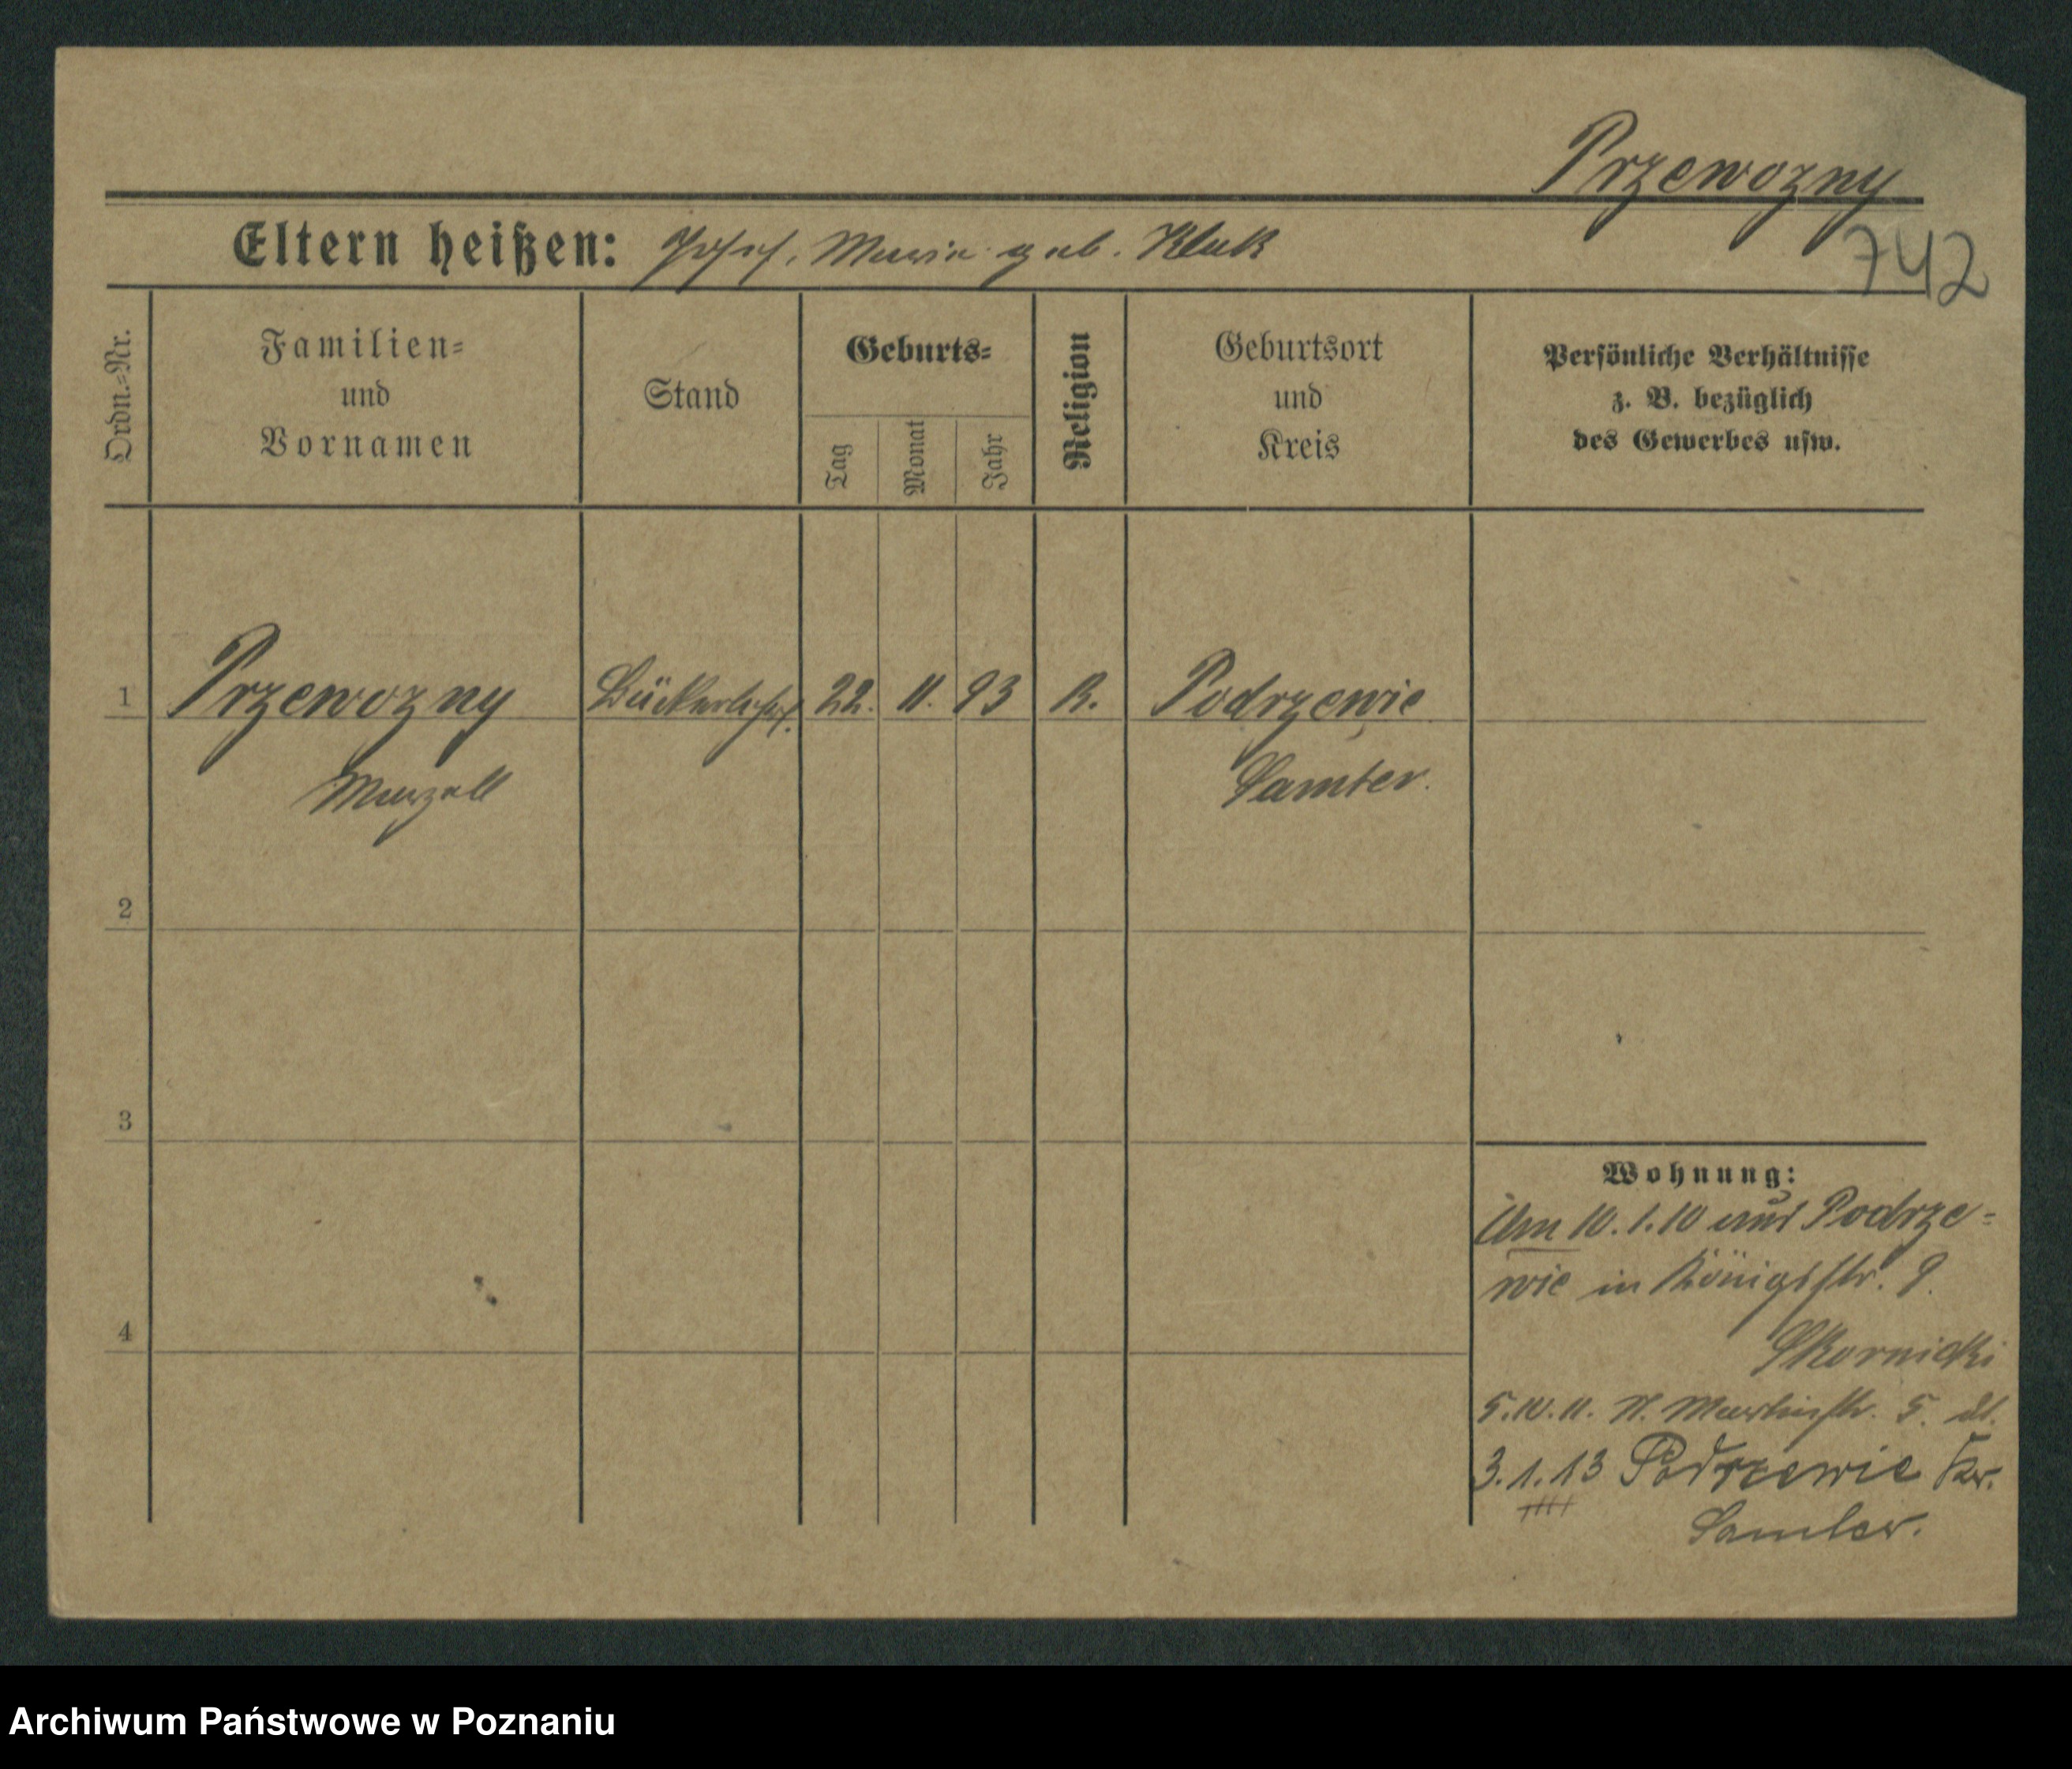 Przewozny
Eltern heißen: Josef, Maria geb. Kluk
742
Ordn.=Nr.
Familien=
und
Vornamen
Stand
Geburts=
Tag
Monat
Jahr
Religion
Geburtsort
und
Kreis
Persönliche Verhältnisse
z. B. bezüglich
des Gewerbes usw.
1 Przewozny 22. 11. 93 K. Podrzewie
Marzell Samter.
2
3
4
Wohnung:
Am 10.1.10 aus Podrze=
wie in Königsstr. 9.
Skornicki
5.10.11. St. Martinstr. 5.
3.1.13 Podrzewie Kr.
Samter.
Archiwum Państwowe w Poznaniu